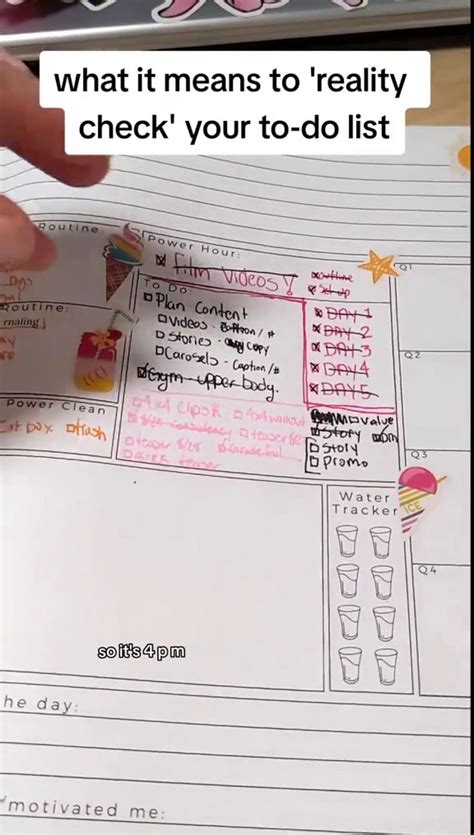 what it means to 'reality
check' your to-do list
Routine:
Power Hour:
Film Videos!
outline
Set up
To Do:
Plan Content
Videos - /#
Stories - copy
Carosels - Caption/#
Gym - upper body.
DAY 1
DAY 2
DAY 3
DAY 4
DAY 5
Routine:
rnaling
Power Clean
box trash
4x4 4x4 workout
8/28 teaser
teaser 8/28
teaser
value
Story Dm
Story
Promo
Q1
Q2
Q3
Q4
Water
Tracker
ICE
so it's 4 pm
he day:
motivated me: